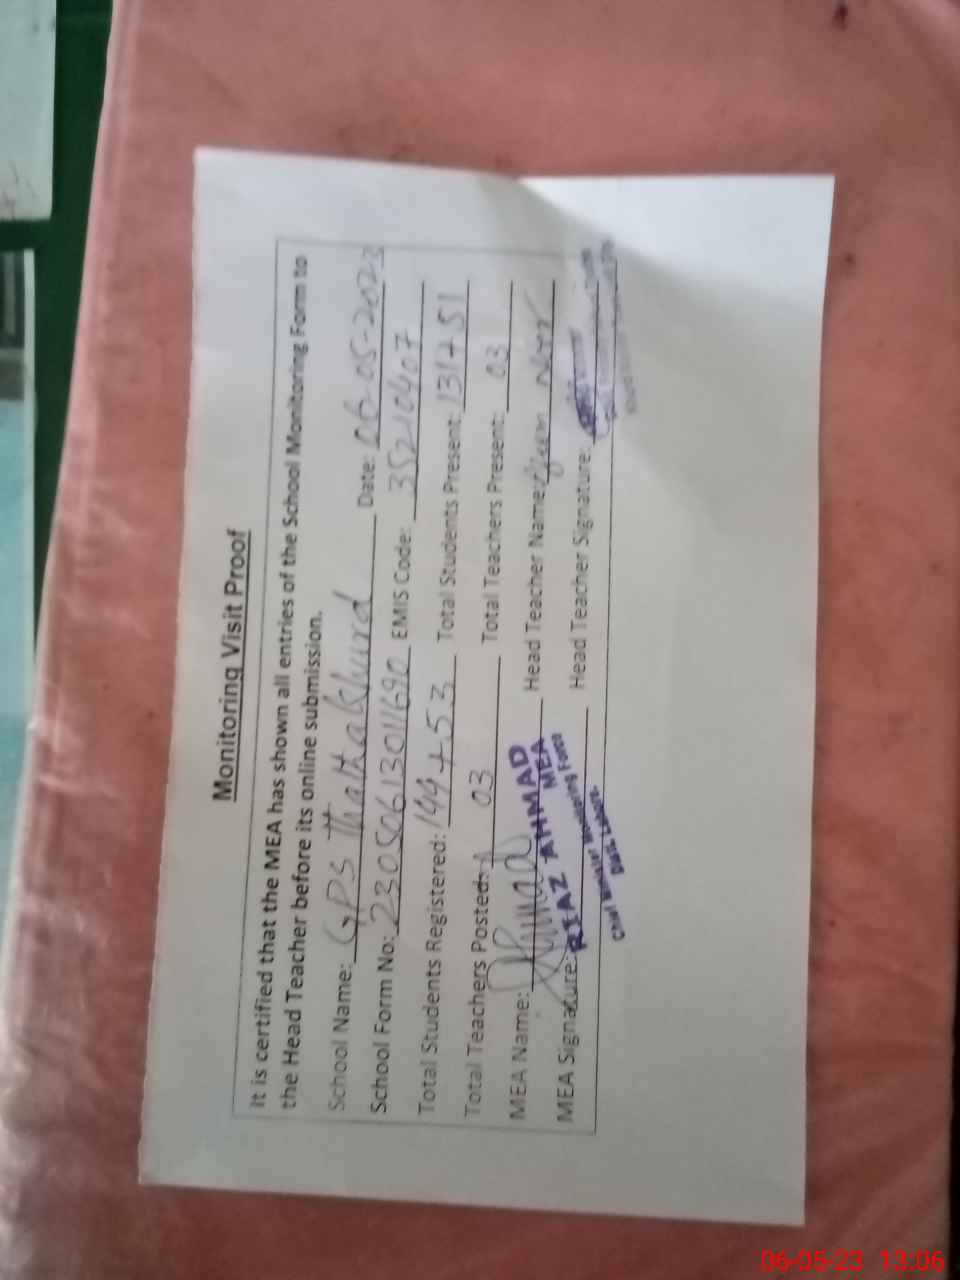 Monitoring Visit Proof
It is certified that the MEA has shown all entries of the School Monitoring Form to
the Head Teacher before its online submission.
School Name: GPS Thatha Khurd Date: 06-05-2023
School Form No: 2305061301169 EMIS Code: 35210407
Total Students Registered: 199+53 Total Students Present: 131+51
Total Teachers Posted: 03 Total Teachers Present: 03
MEA Name: Head Teacher Name:
MEA Signature: Head Teacher Signature:
RIAZ AHMAD
MEA
Chief Minister Monitoring Force
Distt. Lahore.
06-05-23 13:06